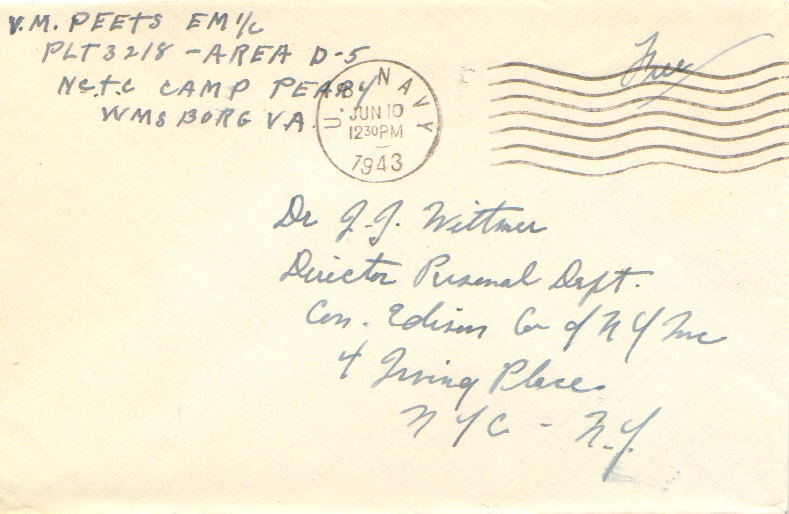 V.M. PEETS EM 1/c
PLT 3218 - AREA D-5
NC.T.C CAMP PEARY
WMSBORG VA.
U. S. NAVY
JUN 10
12 30 PM
1943
Free
Dr J.J. Wittmer
Director Personal Dept.
Con. Edison Co of N Y Inc
4 Irving Place
N Y C - N.Y.